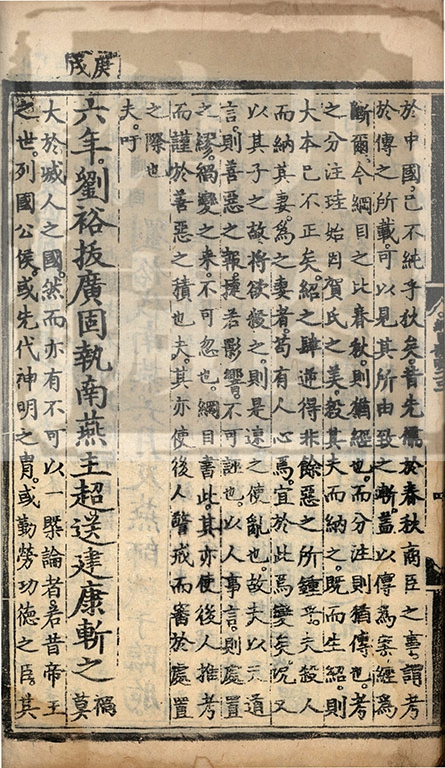 於中國已不純乎狄矣昔先儒於春秋商臣之事謂考
於傳之所載可以見其所由致之漸蓋以傳為案經為
斷爾今綱目之比春秋則猶經也而分注則猶傳也考
之分注珪始因賀氏之美殺其夫而納之既而生紹則
大本已不正矣紹之肆逆得非餘惡之所鍾乎夫殺人
而納其妻為之妻者苟有人心焉宜於此焉變矣況又
以其子之故將欲殺之則是速之使亂也故夫以天道
言則善惡之報捷若影響不可誣也以人事言則處置
之繆禍變之来不可忽也綱目書此其亦使後人推考
而謹於善惡之積也夫其亦使後人警戒而審於處置
之際也
夫吁
庚戌
六年劉裕拔廣固執南燕主超送建康斬之禍莫
大於滅人之國然而亦有不可以一槩論者若昔帝王
之世列國公侯或先代神明之冑或勤勞功德之臣其